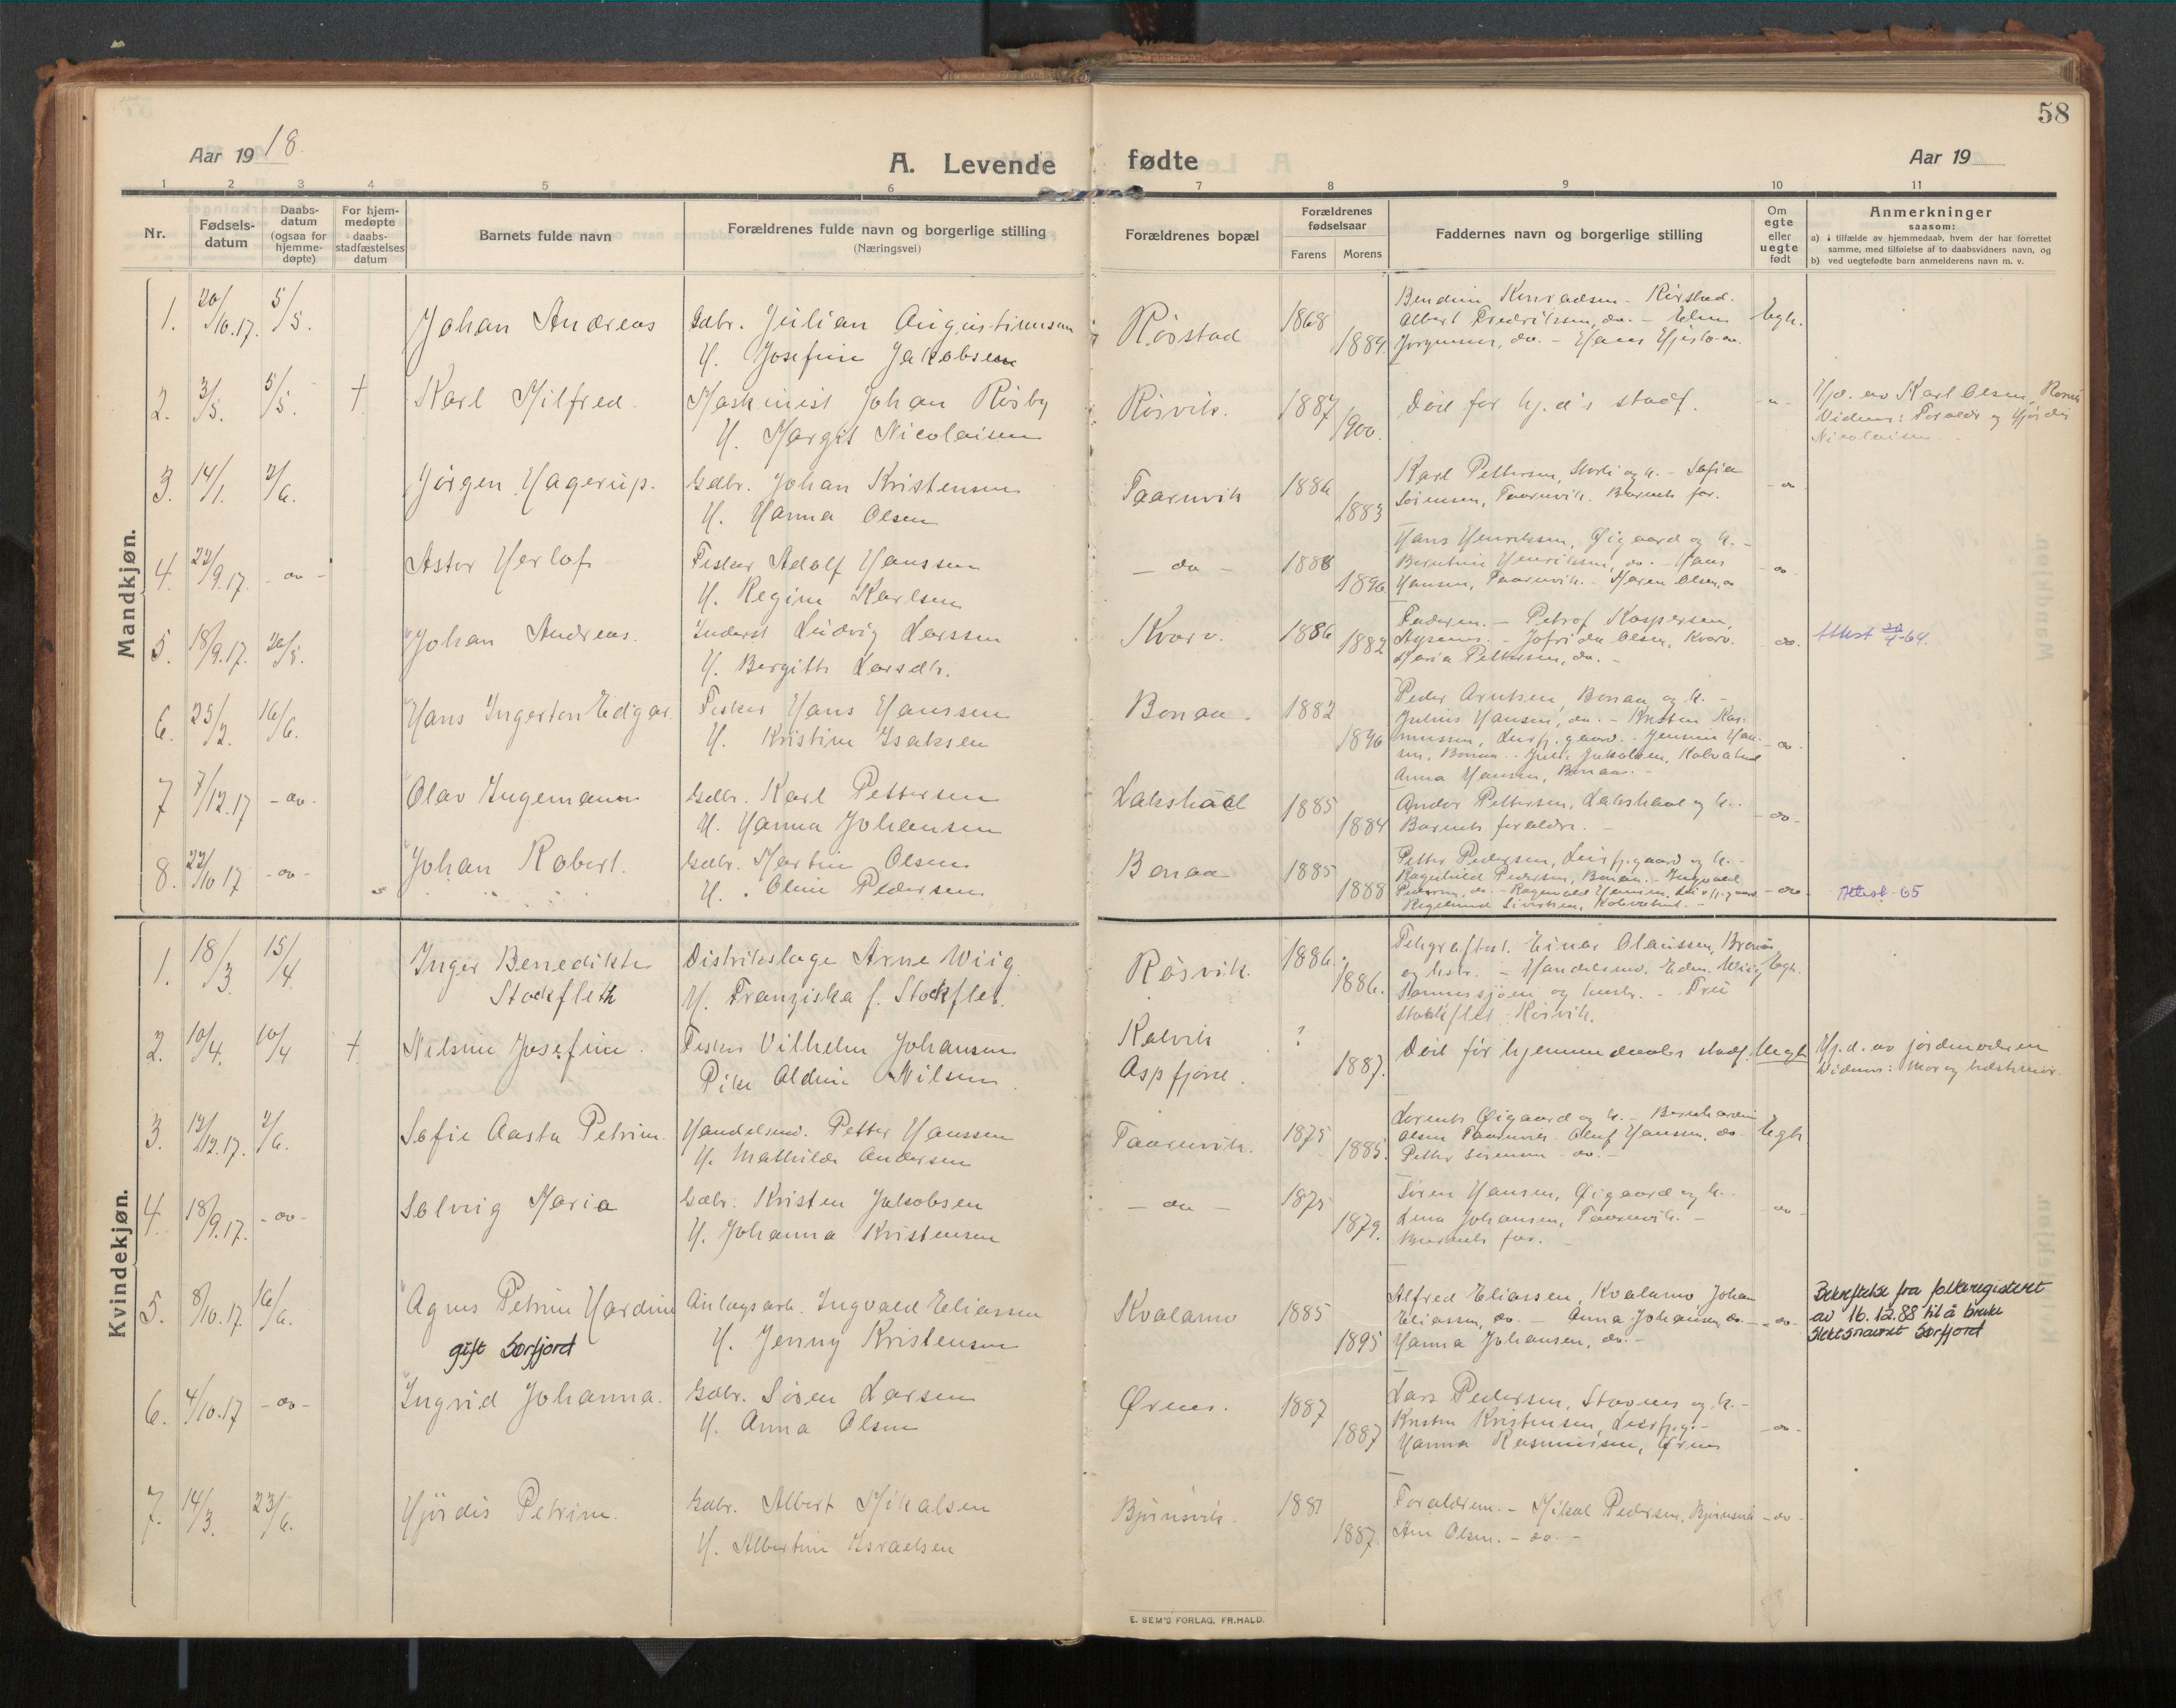 58
Aar 1918.
A. Levende fødte
Aar 19
1 2 3 4 5 6 7 8 9 10 11
Nr.
Fødsels-datum
Daabs-datum (ogsaa for hjemme-døpte)
For hjem-medøpte daabs-stadfæstelses datum
Barnets fulde navn
Forældrenes fulde navn og borgerlige stilling
(Næringsvei)
Forældrenes bopæl
Forældrenes fødselsaar
Farens Morens
Faddernes navn og borgerlige stilling
Om egte eller uegte født
Anmerkninger
saasom:
a) i tilfælde av hjemmedaab, hvem der har forrettet
samme, med tilføielse af to daabsvidners navn, og
b) ved uegtefødte barn anmelderens navn m. v.
Mandkjøn.
1. 20/10.17. 5/5. Johan Andreas Gdbr. Julian Augustinussen Røsstad 1868 Egte.
H. Josefine Jakobsen 1889. Jørgensen, do.
2. 3/5. 5/5. † Karl Milfred. Maskinist Johan Røsby Røsvik. 1887 Död før hj.d's stadf. - " - Hj.d. av Karl Olsen, Røsvik
H. Margit Nicolaisen 1900. Vidner: Foreldr og Hjørdis
Nicolaisen
3. 14/1. 2/6. Jørgen Hagerup. Gdbr. Johan Kristensen Taarnvik 1886 Karl Pettersen, Storli og h. - Sofie - do
H. Hanna Olsen 1883 Sørensen, Taarnvik. Barnets for.
4. 22/9.17. - do - Astor Herlof Fisker Adolf Hanssen - do - 1888 Hans Henriksen, Øigaard og h. -
H. Regine Karlsen 1896 Berntine Henriksen, do. - Hans - do
Hansen, Taarnvik. - Maren Olsen, do
5. 18/9.17. 20/5. Johan Andreas. Inderst Ludvig Larssen Kvarv. 1886 Faderen. - Petrof Kaspersen, Attest 20/4-64.
H. Bergitte Larsdtr. 1882 - Jofrida Olsen, Kvarv. do.
Maria Pettersen, do. -
6. 25/2. 16/6. Hans Ingerton Edgar. Fisker Hans Hanssen Bonaa. 1882 Peder Arntsen, Bonaa og h. -
H. Kristine Isaksen 1896 Julius Hansen, do. - Kristen Ras-
mussen, Leirfj.gaard. - Jensine Han-
sen, Bonaa. - Jakobsen, Kalvatind - do -
Anna Hansen, Bonaa. -
7 7/12.17 - do - Olav Ingemann Gdbr. Karl Pettersen Lakshaal 1885 Andor Pettersen, Lakshaal og h. -
H. Hanna Johansen 1884 Barnets foraldre. - - do -
8. 22/10 17 - do - Johan Robert. Gdbr. Martin Olsen Bonaa 1885 Petter Pedersen, Leirfj.gaard og h. -
H. Oline Pedersen 1888 Ragnhild Pedersen, Bonaa. - Ingvald
Pedersen, do. - Ragnvald Hansen, Leirfj.gaard - do - Attest - 65
Sivertsen, Kalvatind. -
Kvindekjøn.
1. 18/3 15/4. Inger Benedikte Distriktslæge Arne Wiig. Røsvik. 1886. Telegrafbest. Einar Claussen,
Stockfleth H. Franziska f. Stockflet. 1886. og hstr. - Handelsmd. Edm. Wiig Egte.
Hammersjøen og hustr. - Fru
Stockflet. Røsvik.
2. 10/4. 10/4 † Nilsine Josefine. Fisker Vilhelm Johansen Kalvik ? Död før hjemmedaabs stadf. Uegte Hj.d. av jordmoderen
Pike Aldine Nilsen. Aspfjord. 1887. Vidner: Mor og bestemor.
3. 12/12.17. 2/6. Sofie Aasta Petrine. Handelsmd. Petter Hanssen Taarnvik. 1875 Lorents Øigaard og h. - Bernhardine
H. Mathilde Andersen 1885. Olsen Taarnvik. Oluf Hanssen, do. Egte.
Petter Sørensen - do. -
4. 18/9.17. - do - Solveig Maria Gdbr. Kristen Jakobsen - do - 1875 Sören Hansen, Øigaard og h. -
H. Johanna Kristensen 1879. Lina Johansen, Taarnvik. - - do -
Barnets for. -
5. 8/10.17. 16/6. Agnes Petrine Hardine Anlægsarb. Ingvald Eliassen Kvalamo 1885 Alfred Eliassen, Kvalamo Johan Bekreftelse fra folkeregisteret
gift Sørfjord H. Jenny Kristensen 1895 Eliassen, do. - Anna Johansen, do. - - do - av 16.12.88 til å bruke
Hanna Johansen, do. - slektsnavnet Sørfjord
6. 4/10.17 - do - Ingrid Johanna. Gdbr. Sören Larsen Ørnes. 1887 Lars Pedersen, Stavnes og h. -
H. Anna Olsen 1887 Kristen Kristensen, Leirfj.g. - - do -
Hanna Rasmussen, Ørnes
7. 14/3. 23/6. Hjördis Petrine. Gdbr. Albert Mikalsen Bjørnsvik. 1881 Foraldrene. - Mikal Pedersen, Bjørnsvik - do -
H. Albertine Israelsen 1887. Olsen. - do -
E. SEM'S FORLAG, FR.HALD.